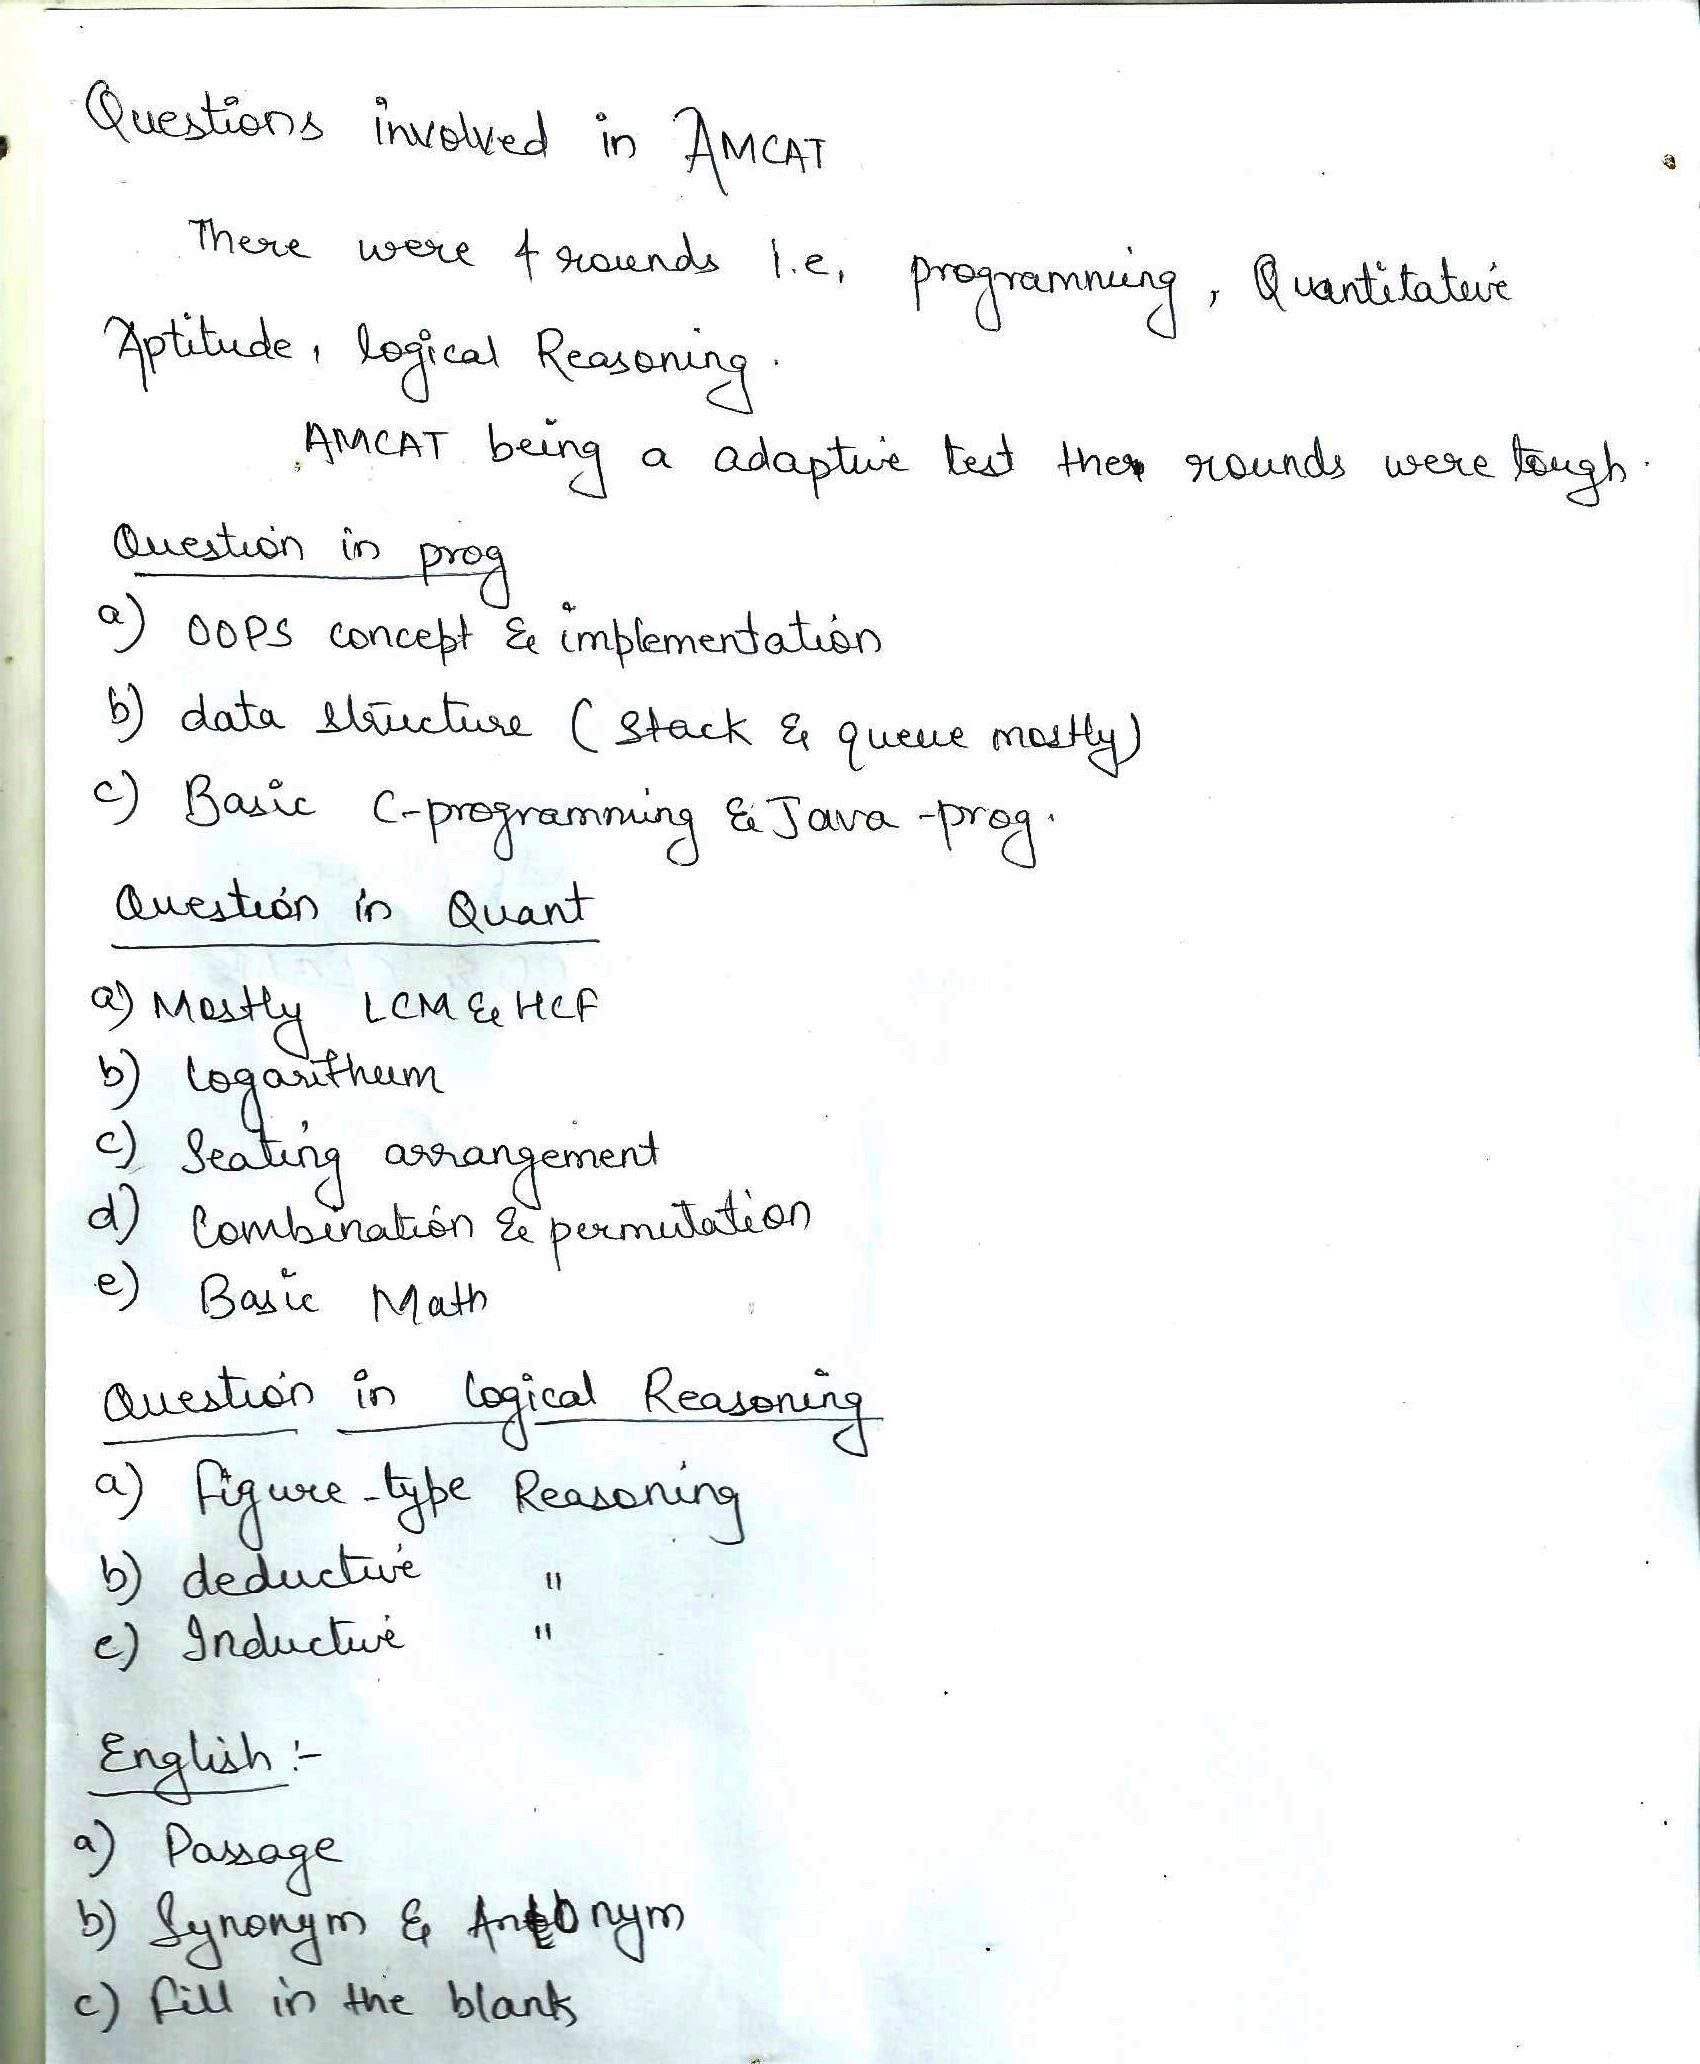 Questions involved in AMCAT
There were 4 rounds I.e, programming, Quantitative
Aptitude, logical Reasoning.
AMCAT being a adaptive test the rounds were tough.
Question in prog
a) OOPS concept & implementation
b) data structure (Stack & queue mostly)
c) Basic C-programming & Java -prog.
Question in Quant
a) Mostly LCM & HCF
b) logarithum
c) Seating arrangement
d) Combination & permutation
e) Basic Math
Question in logical Reasoning
a) figure-type Reasoning
b) deductive "
c) Inductive "
English :-
a) Passage
b) Synonym & Antonym
c) fill in the blanks